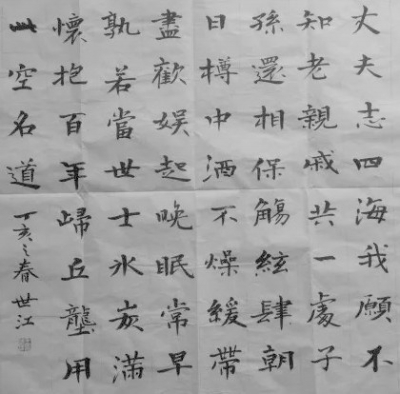 丈夫志四海我願不
知老親戚共一處子
孫還相保觴絃肆朝
日樽中酒不燥緩帶
盡歡娛起晚眠常早
孰若當世士氷炭滿
懷抱百年歸丘壟用
此空名道
丁亥之春 世江